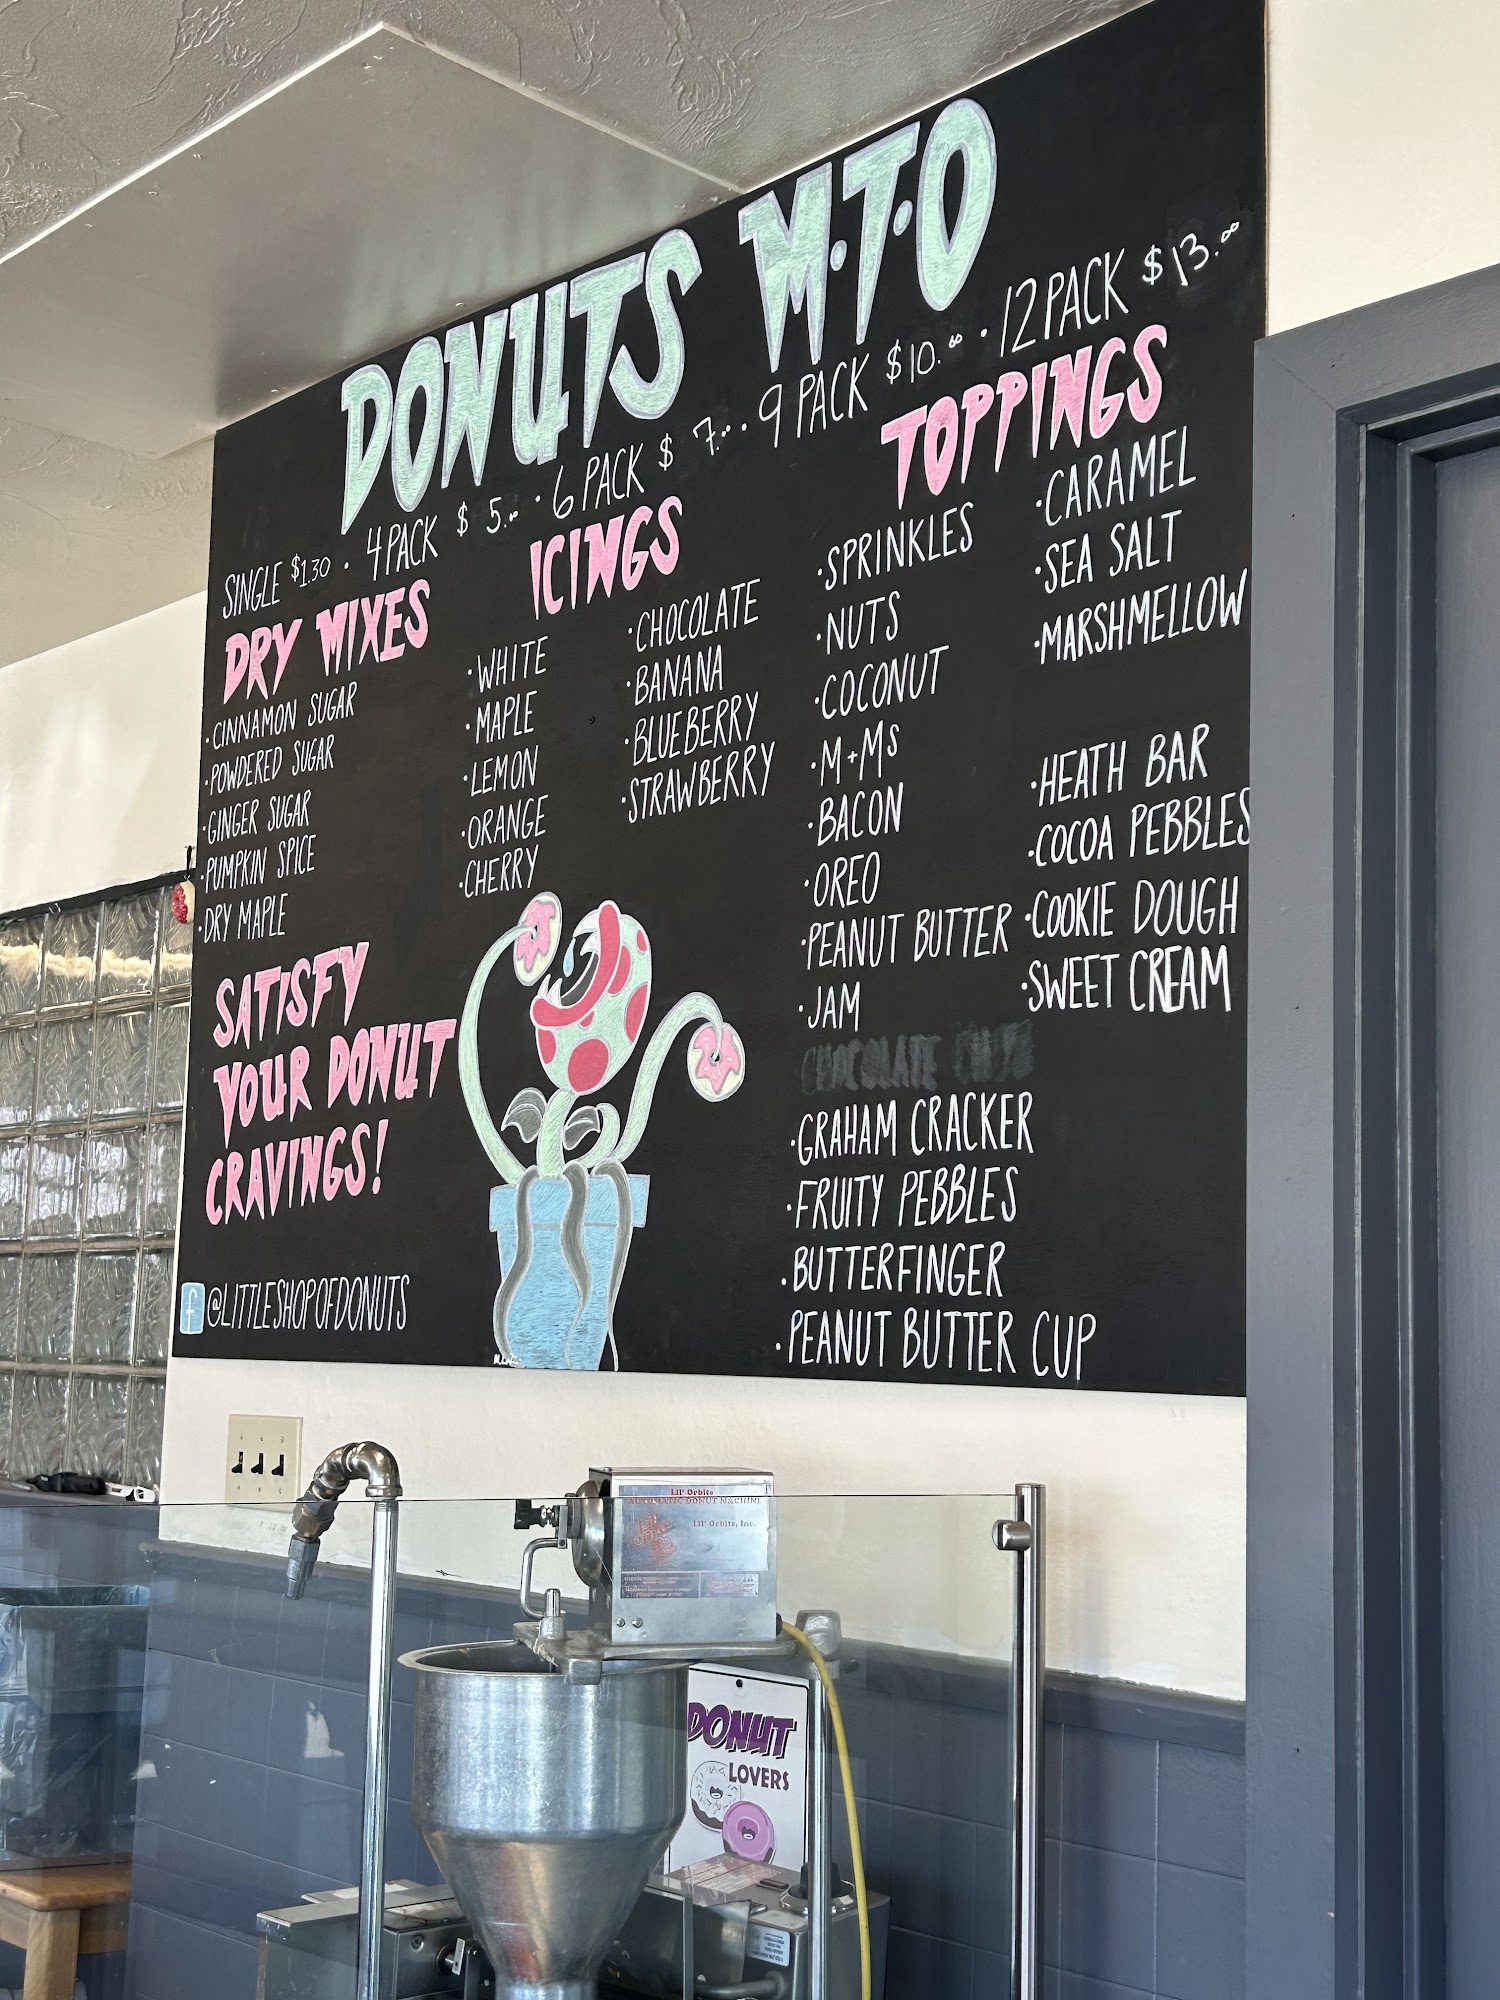 DONUTS M·T·O
SINGLE $1.30 · 4 PACK $5.00 · 6 PACK $7.00 · 9 PACK $10.00 · 12 PACK $13.00
DRY MIXES
·CINNAMON SUGAR
·POWDERED SUGAR
·GINGER SUGAR
·PUMPKIN SPICE
·DRY MAPLE
ICINGS
·WHITE
·MAPLE
·LEMON
·ORANGE
·CHERRY
·CHOCOLATE
·BANANA
·BLUEBERRY
·STRAWBERRY
TOPPINGS
·SPRINKLES
·NUTS
·COCONUT
·M+MS
·BACON
·OREO
·PEANUT BUTTER
·JAM
CHOCOLATE CHIPS
·GRAHAM CRACKER
·FRUITY PEBBLES
·BUTTERFINGER
·PEANUT BUTTER CUP
·CARAMEL
·SEA SALT
·MARSHMELLOW
·HEATH BAR
·COCOA PEBBLES
·COOKIE DOUGH
·SWEET CREAM
SATISFY
YOUR DONUT
CRAVINGS!
f @LITTLESHOPOFDONUTS
Lil' Orbits
AUTOMATIC DONUT MACHINE
Lil' Orbits, Inc.
DONUT
LOVERS